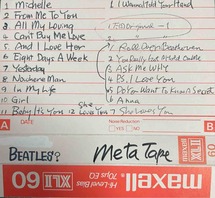 1 Michelle
2 From Me To You
3 All My Loving
4 Can't Buy Me Love
5 And I Love Her
6 Eight Days A Week
7 Yesterday
8 Nowhere Man
9 In My Life
10 Girl
11 Baby It's You 12 She Loves You
I Wanna Hold Your Hand
1 Roll Over Beethoven
2 You Really Got A Hold
3 Ask Me Why
4 P.S. I Love You
5 Do You Want To Know A Secret
6 Anna
7 She Loves You
A DATE
Noise Reduction
YES NO
B
BEATLES? Meta Tape
XLII 60
maxell
High-Level Bias
XLII 60